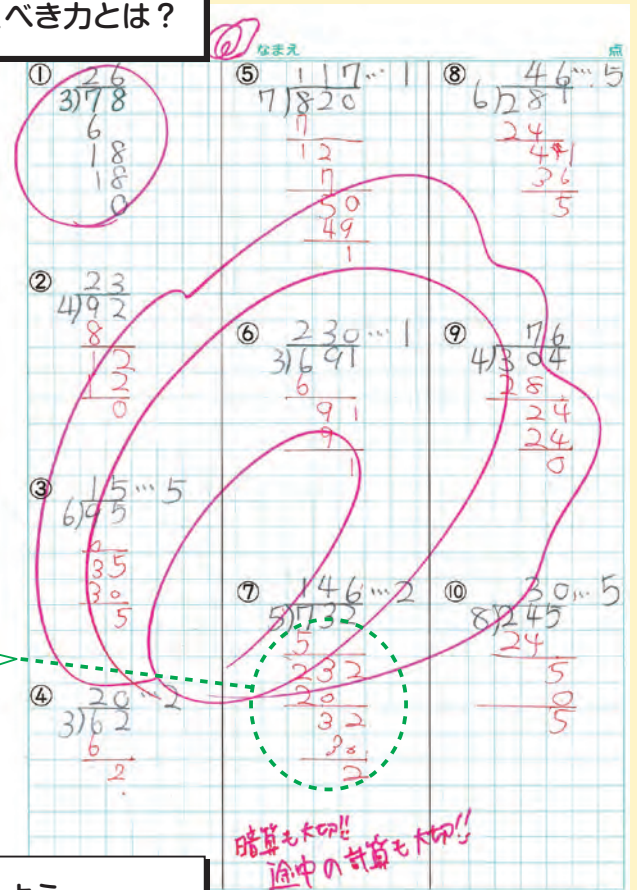 べき力とは？
なまえ
点
①
26
3)78
6
18
18
0
②
23
4)92
8
12
12
0
③
15…5
6)95
6
35
30
5
④
20…2
3)62
6
2
⑤
117…1
7)820
7
12
7
50
49
1
⑥
230…1
3)691
6
91
9
1
⑦
146…2
5)732
5
232
20
32
30
2
⑧
46…5
6)281
24
41
36
5
⑨
76
4)304
28
24
24
0
⑩
30…5
8)245
24
5
0
5
暗算も大切!!
途中の計算も大切!!